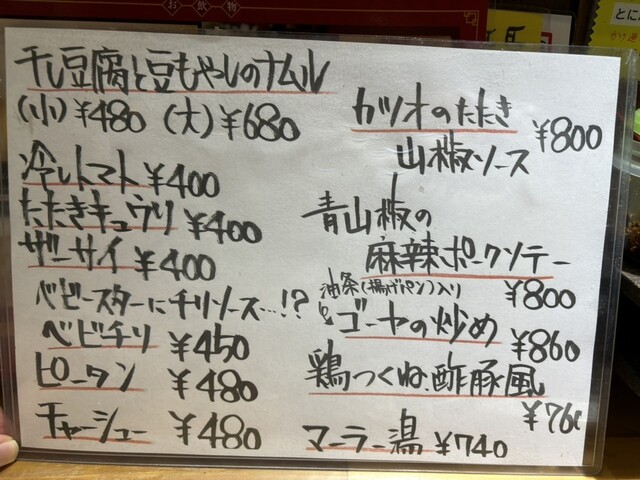 お飲物
干し豆腐と豆もやしのナムル
(小)¥480 (大)¥680
冷しトマト ¥400
たたきキュウリ ¥400
ザーサイ ¥400
ベビースターにチリソース…!?
ベビチリ ¥450
ピータン ¥480
チャーシュー ¥480
カツオのたたき
山椒ソース ¥800
青山椒の
麻辣ポークソテー
¥800
油条(揚げパン)入り
ゴーヤの炒め ¥860
鶏つくね酢豚風
¥760
マーラー湯 ¥740